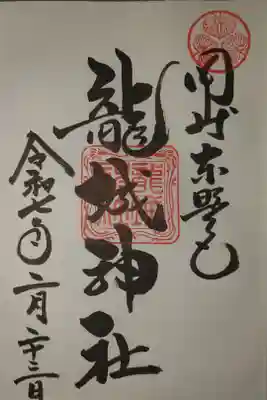 岡崎東照宮
龍城神社
令和七年二月二十三日